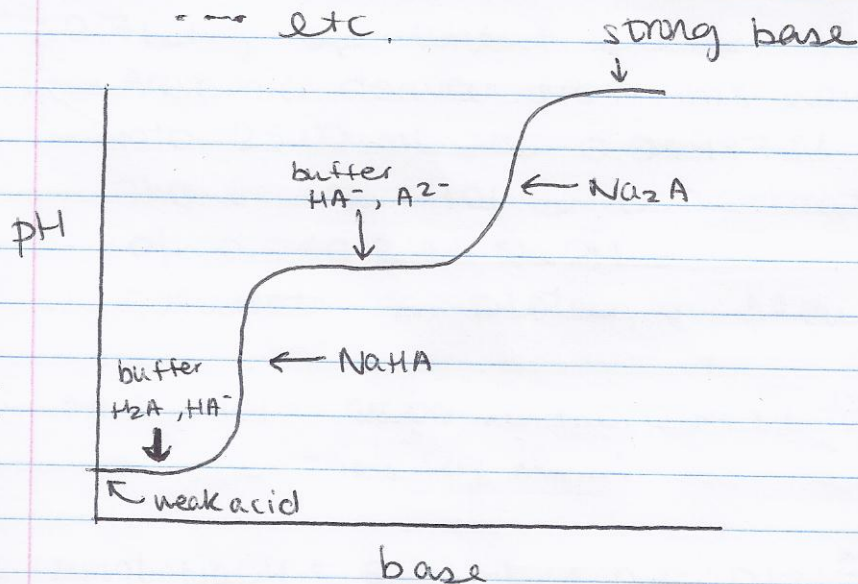 ---- etc.
strong base
buffer
HA⁻, A²⁻
Na₂A
pH
NaHA
buffer
H₂A, HA⁻
weak acid
base